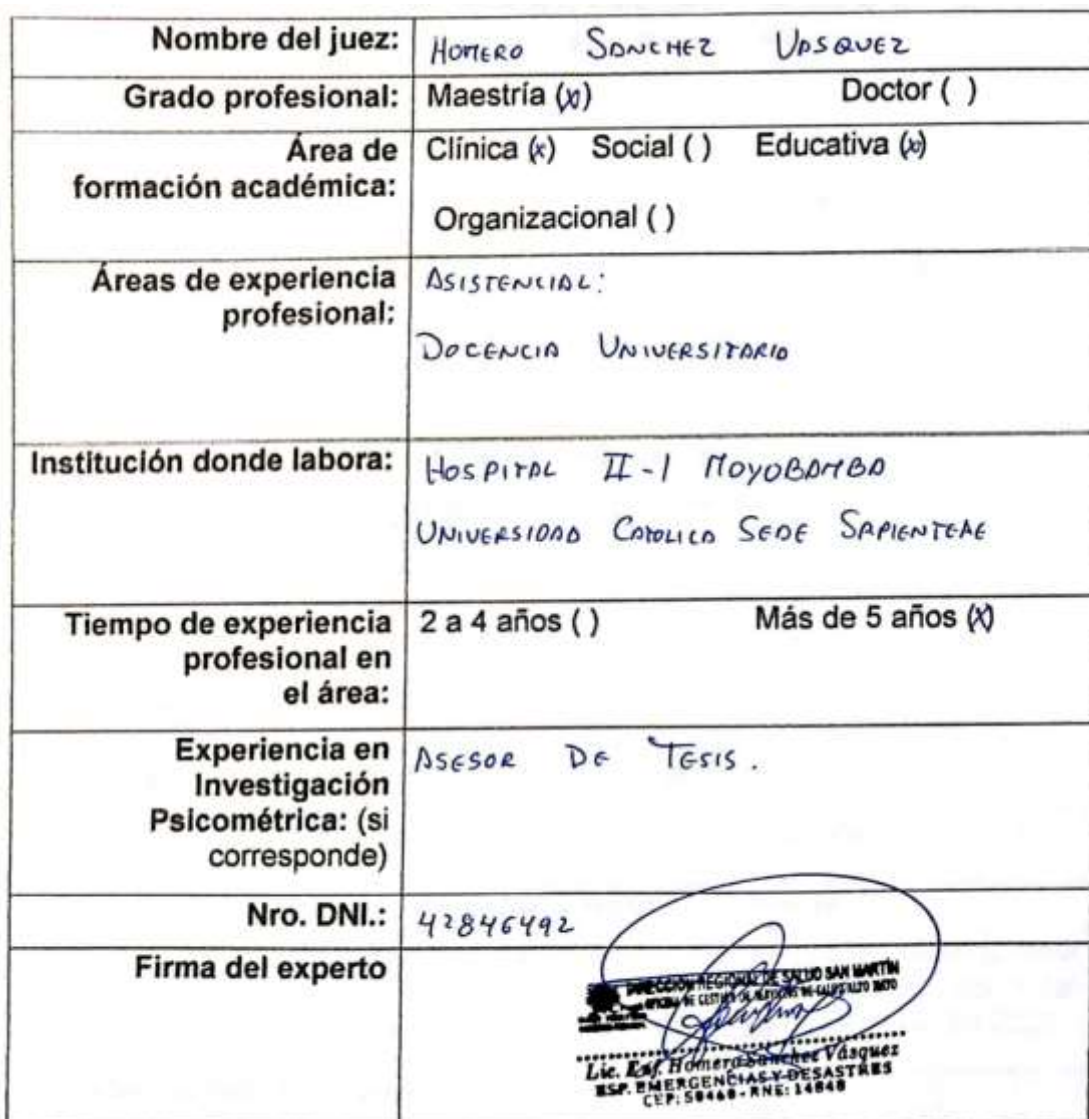 Nombre del juez: HOMERO SANCHEZ VASQUEZ
Grado profesional: Maestría (x) Doctor ( )
Área de formación académica: Clínica (x) Social ( ) Educativa (x)
Organizacional ( )
Áreas de experiencia profesional: ASISTENCIAL:
DOCENCIA UNIVERSITARIA
Institución donde labora: HOSPITAL II-1 MOYOBAMBA
UNIVERSIDAD CATOLICA SEDE SAPIENTEAE
Tiempo de experiencia profesional en el área: 2 a 4 años ( ) Más de 5 años (X)
Experiencia en Investigación Psicométrica: (si corresponde) ASESOR DE TESIS.
Nro. DNI.: 42846492
Firma del experto
DIRECCIÓN REGIONAL DE SALUD SAN MARTÍN
OFICINA DE GESTIÓN DE SERVICIOS DE SALUD ALTO MAYO
Lic. Enf. Homero Sanchez Vásquez
ESP. EMERGENCIAS Y DESASTRES
CEP: 58468 - RNE: 14848